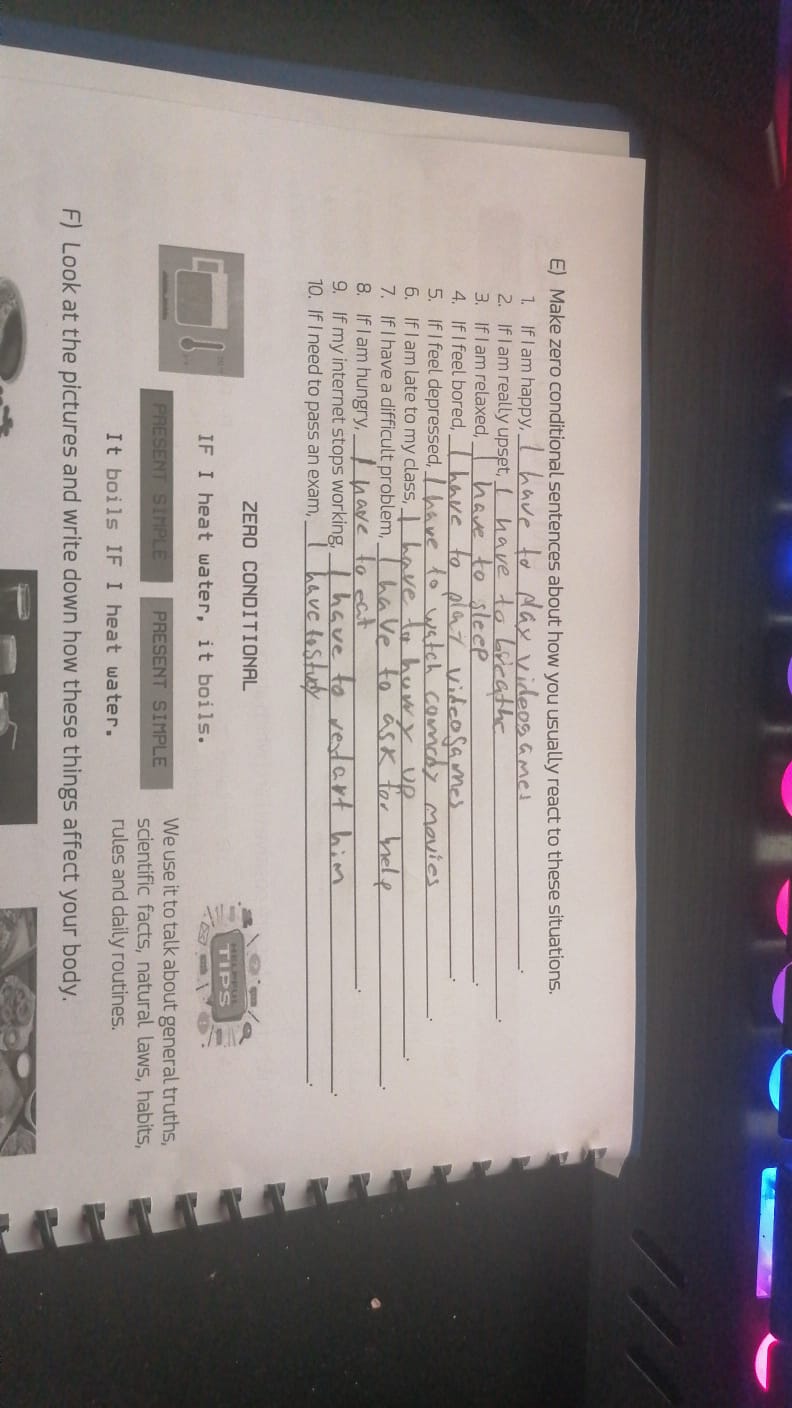 E) Make zero conditional sentences about how you usually react to these situations.
1. If I am happy, I have to play videogames.
2. If I am really upset, I have to breathe.
3. If I am relaxed, I have to sleep.
4. If I feel bored, I have to play videogames.
5. If I feel depressed, I have to watch comedy movies.
6. If I am late to my class, I have to hurry up.
7. If I have a difficult problem, I have to ask for help.
8. If I am hungry, I have to eat.
9. If my internet stops working, I have to restart him.
10. If I need to pass an exam, I have to study.
ZERO CONDITIONAL
IF I heat water, it boils.
PRESENT SIMPLE PRESENT SIMPLE
It boils IF I heat water.
HELPFUL
TIPS
We use it to talk about general truths,
scientific facts, natural laws, habits,
rules and daily routines.
F) Look at the pictures and write down how these things affect your body.